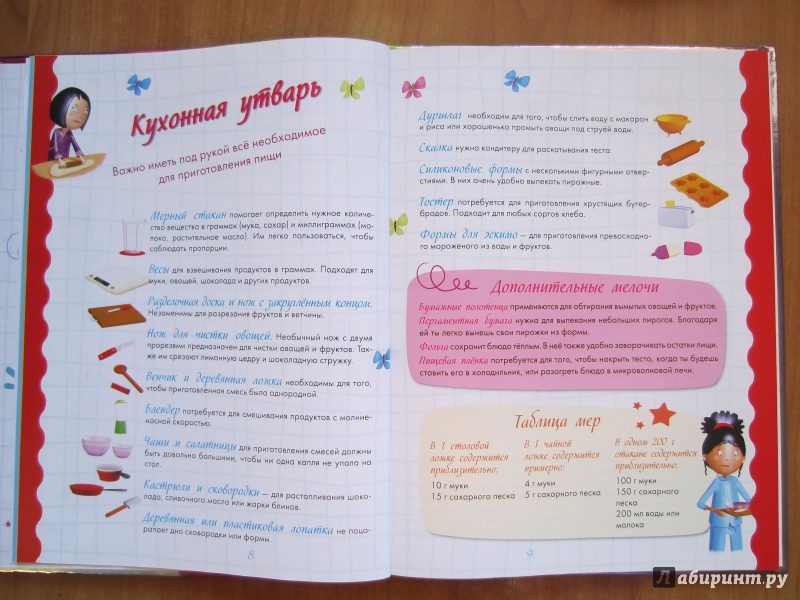 Кухонная утварь
Важно иметь под рукой всё необходимое
для приготовления пищи
Мерный стакан помогает определить нужное количе-
ство вещества в граммах (мука, сахар) и миллиграммах (мо-
локо, растительное масло). Им легко пользоваться, чтобы
соблюдать пропорции.
Весы для взвешивания продуктов в граммах. Подходят для
муки, овощей, шоколада и других продуктов.
Разделочная доска и нож с закруглённым концом.
Незаменимы для разрезания фруктов и ветчины.
Нож для чистки овощей. Необычный нож с двумя
прорезями предназначен для чистки овощей и фруктов. Так-
же им срезают лимонную цедру и шоколадную стружку.
Венчик и деревянная ложка необходимы для того,
чтобы приготовленная смесь была однородной.
Блендер потребуется для смешивания продуктов с молние-
носной скоростью.
Чаши и салатницы для приготовления смесей должны
быть довольно большими, чтобы ни одна капля не упала на
стол.
Кастрюли и сковородки – для растапливания шоко-
лада, сливочного масла или жарки блинов.
Деревянная или пластиковая лопатка не поца-
рапает дно сковородки или формы.
8
Дуршлаг необходим для того, чтобы слить воду с макарон
и риса или хорошенько промыть овощи под струёй воды.
Скалка нужна кондитеру для раскатывания теста.
Силиконовые формы с несколькими фигурными отвер-
стиями. В них очень удобно выпекать пирожные.
Тостер потребуется для приготовления хрустящих бутер-
бродов. Подходит для любых сортов хлеба.
Формы для эскимо – для приготовления превосходно-
го мороженого из воды и фруктов.
Дополнительные мелочи
Бумажные полотенца применяются для обтирания вымытых овощей и фруктов.
Пергаментная бумага нужна для выпекания небольших пирогов. Благодаря
ей ты легко вынешь свои пирожки из формы.
Фольга сохранит блюдо тёплым. В неё также удобно заворачивать остатки пищи.
Пищевая плёнка потребуется для того, чтобы накрыть тесто, когда ты будешь
ставить его в холодильник, или разогреть блюдо в микроволновой печи.
Таблица мер
В 1 столовой
ложке содержится
приблизительно:
10 г муки
15 г сахарного песка
В 1 чайной
ложке содержится
примерно:
4 г муки
5 г сахарного песка
В одном 200 г
стакане содержится
приблизительно:
100 г муки
150 г сахарного
песка
200 мл воды или
молока
9
Лабиринт.ру